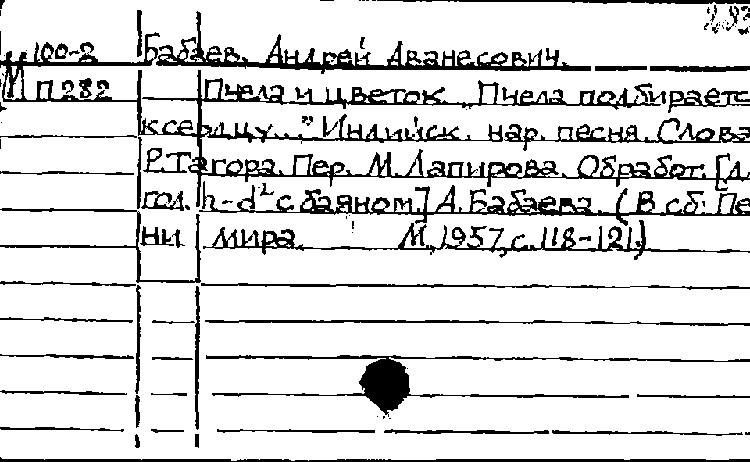 293
М 100-2 Бабаев, Андрей Аванесович.
П 282 Пчела и цветок. „Пчела подбирается
к сердцу..." Индийск. нар. песня. Слова
Р. Тагора. Пер. М. Лапирова. Обработ. [д.
гол. h-d² с баяном.] А. Бабаева. (В сб: Пе
ни мира. М., 1957, с. 118-121.)